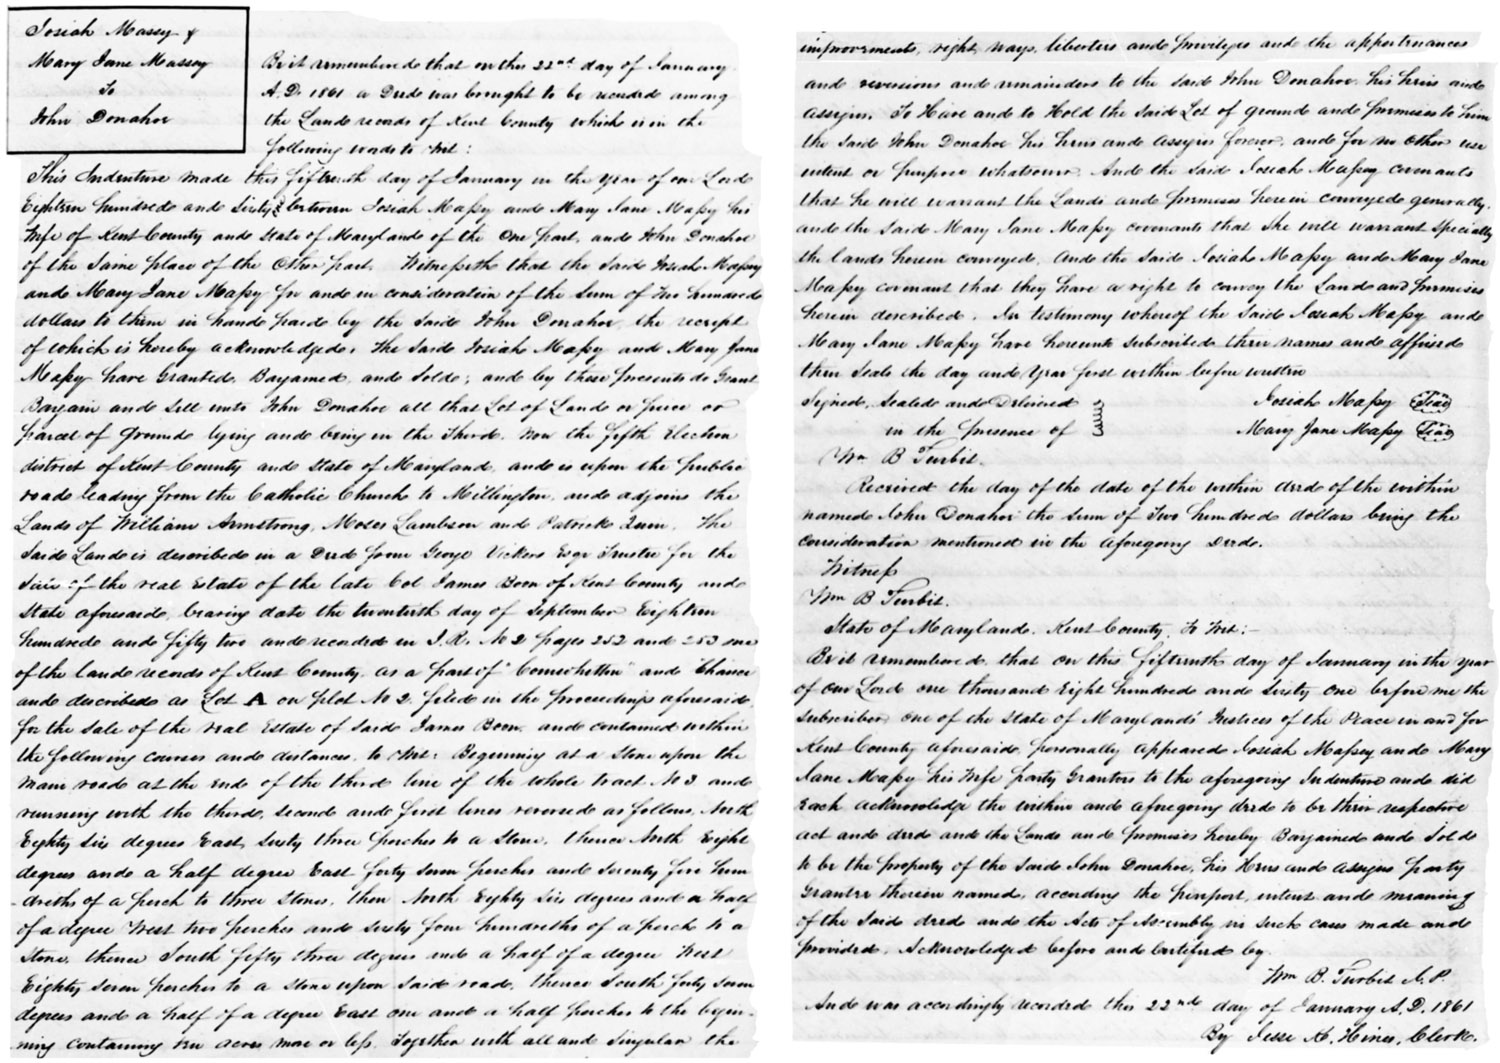 Josiah Massey &
Mary Jane Massey
To
John Donahoe
Be it remembered that on this 22nd day of January
A.D. 1861 a Deed was brought to be recorded among
the Land records of Kent County which is in the
following words to Wit:
This Indenture made this fifteenth day of January in the Year of our Lord
Eighteen hundred and Sixty between Josiah Massy and Mary Jane Massy his
Wife of Kent County and State of Maryland of the One part, and John Donahoe
of the Same place of the Other part. Witnesseth that the Said Josiah Massey
and Mary Jane Massy for and in consideration of the Sum of two hundred
dollars to them in hand paid by the Said John Donahoe, the receipt
of which is hereby acknowledged, the Said Josiah Massy and Mary Jane
Massy have Granted, Bargained, and Sold; and by these presents do Grant
Bargain and Sell unto John Donahoe all that Lot of Land or piece or
parcel of Ground lying and being in the Third, Now the fifth Election
district of Kent County and State of Maryland, and is upon the public
road leading from the Catholic Church to Millington, and adjoins the
Lands of William Armstrong, Moses Lambson and Patrick Quin. The
Said Land is described in a Deed from George Vickers Esqr Trustee for the
Sale of the real Estate of the late Col James Boon of Kent County and
State aforesaid, bearing date the twentieth day of September Eighteen
hundred and fifty two and recorded in J.R. No 2 pages 252 and 253 one
of the land records of Kent County, as a part of "Comewhitten" and "Chance
and described as Lot A on plot No 2. filed in the proceedings aforesaid
for the Sale of the real Estate of Said James Boon, and contained within
the following courses and distances, to Wit: Beginning at a Stone upon the
main road at the end of the third line of the whole tract No 3 and
running with the third, second and first lines reversed as follows, North
Eighty Six degrees East, Sixty three perches to a Stone, thence North Eight
degrees and a half degree East forty Seven perches and Seventy five hun
-dreths of a perch to three Stones, then North Eighty Six degrees and a half
of a degree West two perches and Sixty four hundreths of a perch to a
Stone, thence South fifty three degrees and a half of a degree West
Eighty Seven perches to a Stone upon Said road, thence South forty Seven
degrees and a half of a degree East one and a half perches to the begin-
ning containing ten acres more or less. Together with all and Singular the
improvements, right, ways, liberties and privileges and the appertenances
and reversions and remainders to the Said John Donahoe, his heirs and
assigns. To Have and to Hold the Said Lot of ground and premises to him
the Said John Donahoe his heirs and assigns forever, and for no Other use
intent or purpose whatsoever. And the Said Josiah Massey covenants
that he will warrant the Lands and premises herein conveyed generally,
and the Said Mary Jane Massy covenants that She will warrant Specially
the lands herein conveyed. And the Said Josiah Massy and Mary Jane
Massy covenant that they have a right to convey the Land and premises
herein described. In testimony whereof the Said Josiah Massy and
Mary Jane Massy have hereunto Subscribed their names and affixed
their Seals the day and Year first within before written
Signed, Sealed and Delivered Josiah Massy Seal
in the presence of Mary Jane Massy Seal
Wm B Turbit.
Received the day of the date of the within deed of the within
named John Donahoe the Sum of Two hundred dollars being the
consideration mentioned in the aforegoing Deed.
Witness
Wm B Turbit.
State of Maryland, Kent County, To Wit:-
Be it remembered, that on this fifteenth day of January in the year
of our Lord one thousand Eight hundred and Sixty one before me the
Subscriber one of the State of Marylands' Justices of the Peace in and for
Kent County aforesaid, personally appeared Josiah Massey and Mary
Jane Massy his Wife party Grantors to the aforegoing Indenture and did
Each acknowledge the within and aforegoing deed to be their respective
act and deed and the Land and premises hereby Bargained and Sold
to be the property of the Said John Donahoe, his Heirs and assigns party
Grantee therein named, according the purport, intent and meaning
of the Said deed and the Acts of Assembly in Such cases made and
provided. Acknowledged before and Certified by
Wm B. Turbit J.P.
And was accordingly recorded this 22nd day of January A.D. 1861
By Jesse K. Hines, Clerk.